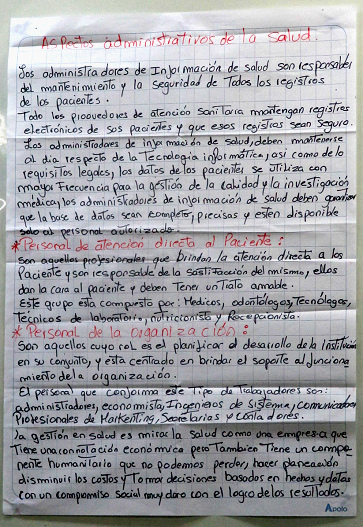 Aspectos administrativos de la Salud.
Los administradores de Información de salud son responsables
del mantenimiento y la seguridad de Todos los registros
de los pacientes.
Todo los proveedores de atención Sanitaria mantengan registros
electrónicos de sus pacientes y que esos registros sean seguro.
Los administradores de información de salud, deben mantenerse
al día respecto de la Tecnología informática, asi como de lo
requisitos legales, los datos de los pacientes se utiliza con
mayor frecuencia para la gestión de la calidad y la investigación
medica, los administradores de información de salud deben garantizar
que la base de datos sean completas, precisas y esten disponible
solo al personal autorizado.
* Personal de atención directa al Paciente:
Son aquellos profesionales que brindan la atención directa a los
Paciente y son responsable de la satisfacción del mismo, ellos
dan la cara al paciente y deben Tener un Trato amable.
Este grupo esta compuesto por: Medicos, odontologos, Tecnólogos,
Tecnicos de laboratorio, nutricionista y Recepcionista.
* Personal de la organización:
Son aquellos cuyo rol es el planificar el desarrollo de la Institución
en su conjunto, y está centrado en brindar el soporte al funciona
miento de la organización.
El personal que conforma este Tipo de Trabajadores son:
administradores, economista, Ingenieros de Sistema, comunicadores
Profesionales de Markenting, Secretarias y Contadores.
La gestión en salud es mirar la Salud como una empresa que
Tiene una connotación económica pero También Tiene un compo-
nente humanitario que no podemos perder, hacer planeación
disminuir los costos y Tomar decisiones basados en hechos y datos
con un compromiso Social muy claro con el logro de los resultados.
Apolo